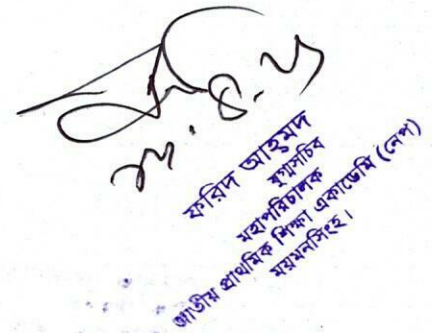 ফরিদ আহ্‌মদ
যুগ্মসচিব
মহাপরিচালক
জাতীয় প্রাথমিক শিক্ষা একাডেমি (নেপ)
ময়মনসিংহ।